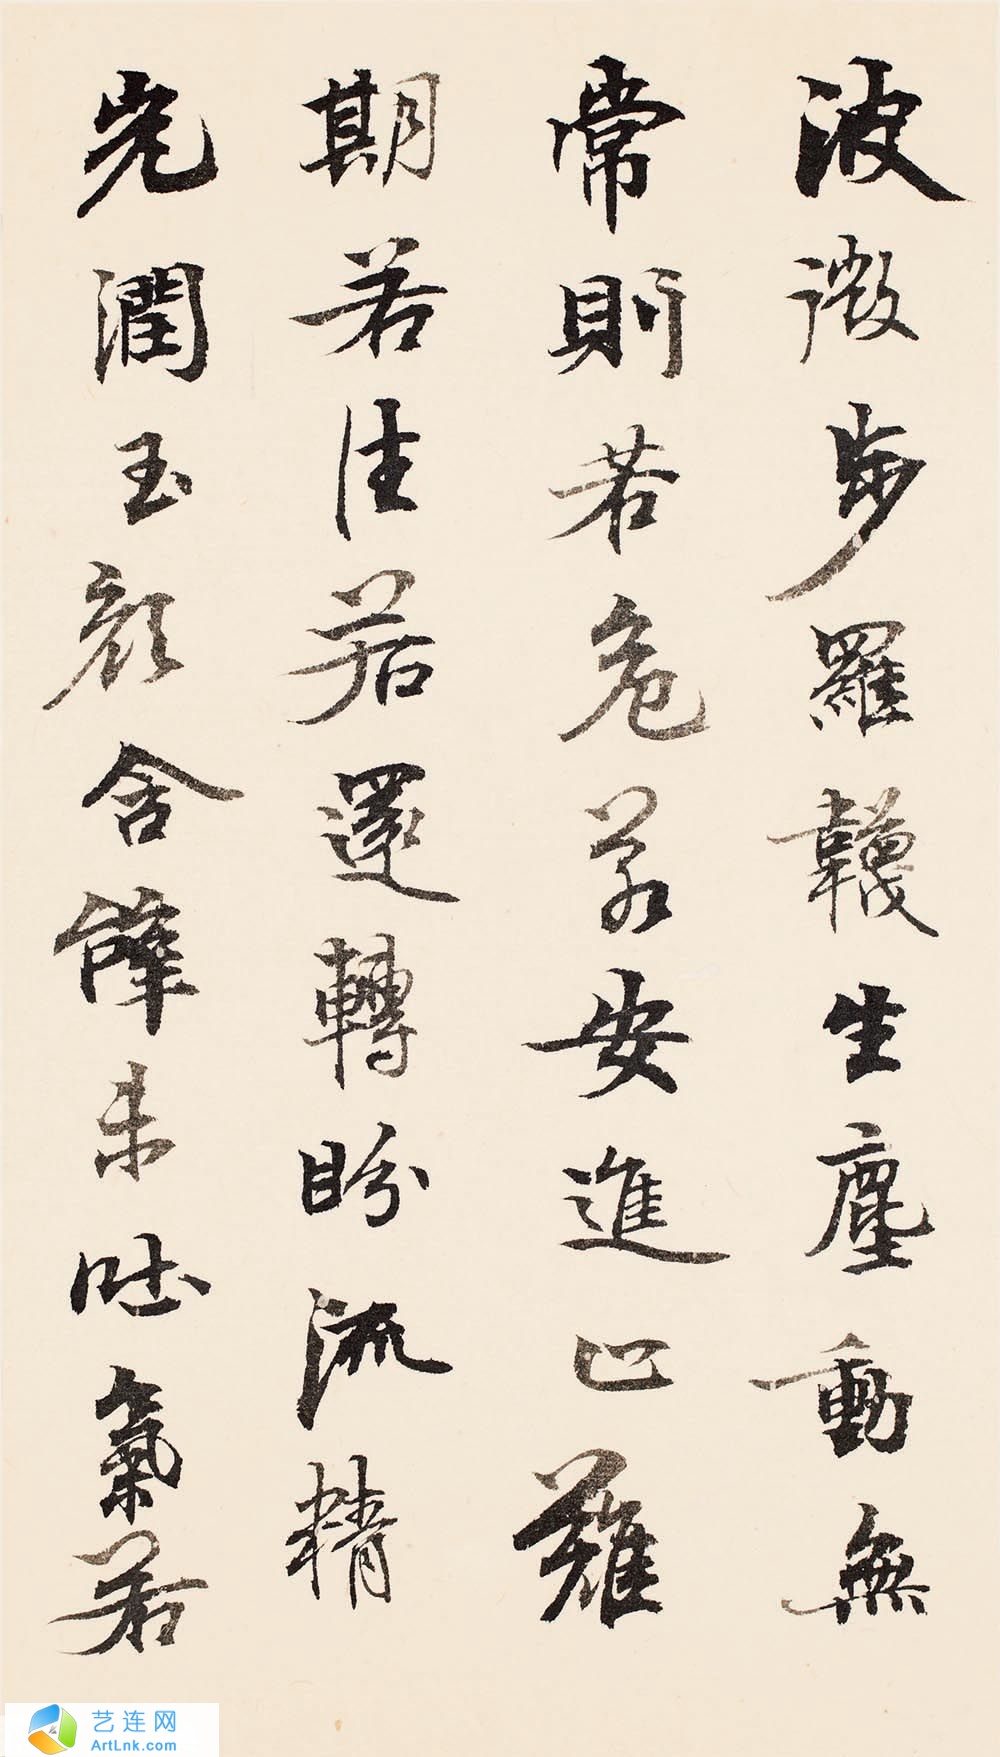 波微步羅韈生塵動無
常則若危若安進止難
期若往若還轉眄流精
光潤玉顏含辭未吐氣若
艺连网
ArtLnk.com